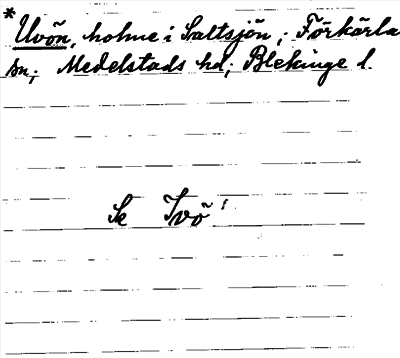 * Uvön, holme i Saltsjön; Förkärla
sn; Medelstads hd; Blekinge l.
Se Tvö!